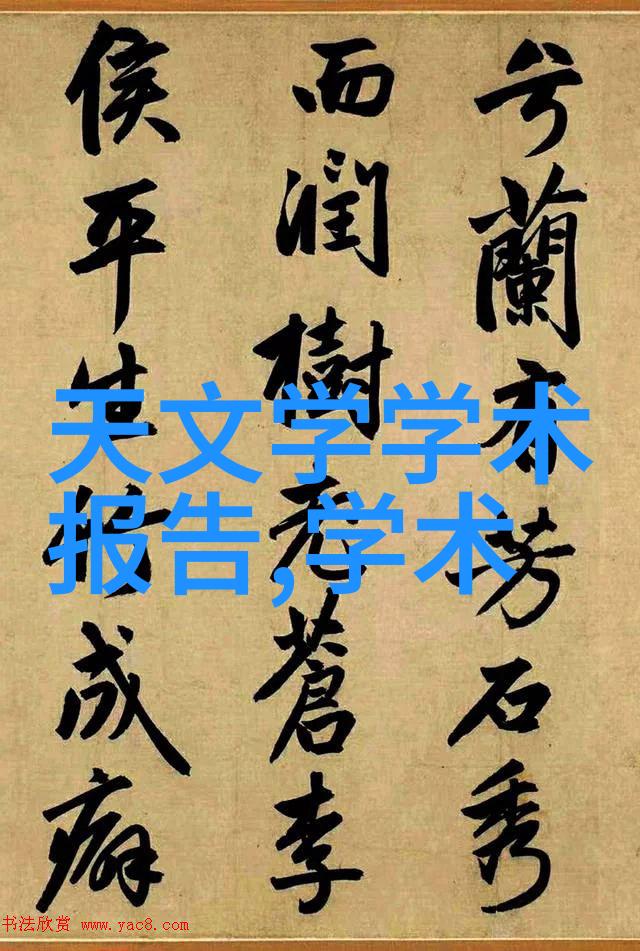 兮蘭香芳石秀
而潤樹老蒼李
侯平生竹成癖
天文学学术
报告,学术
书法欣赏 www.yac8.com